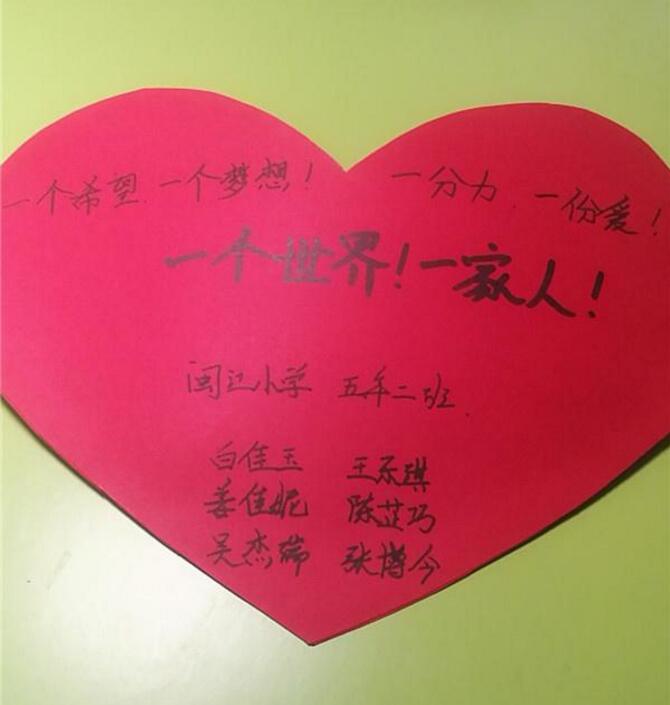 一个希望、一个梦想！ 一分力、一份爱！
一个世界！一家人！
闽江小学 五年二班
白佳玉 王乐琪
姜佳妮 陈芷巧
吴杰瑞 张博今